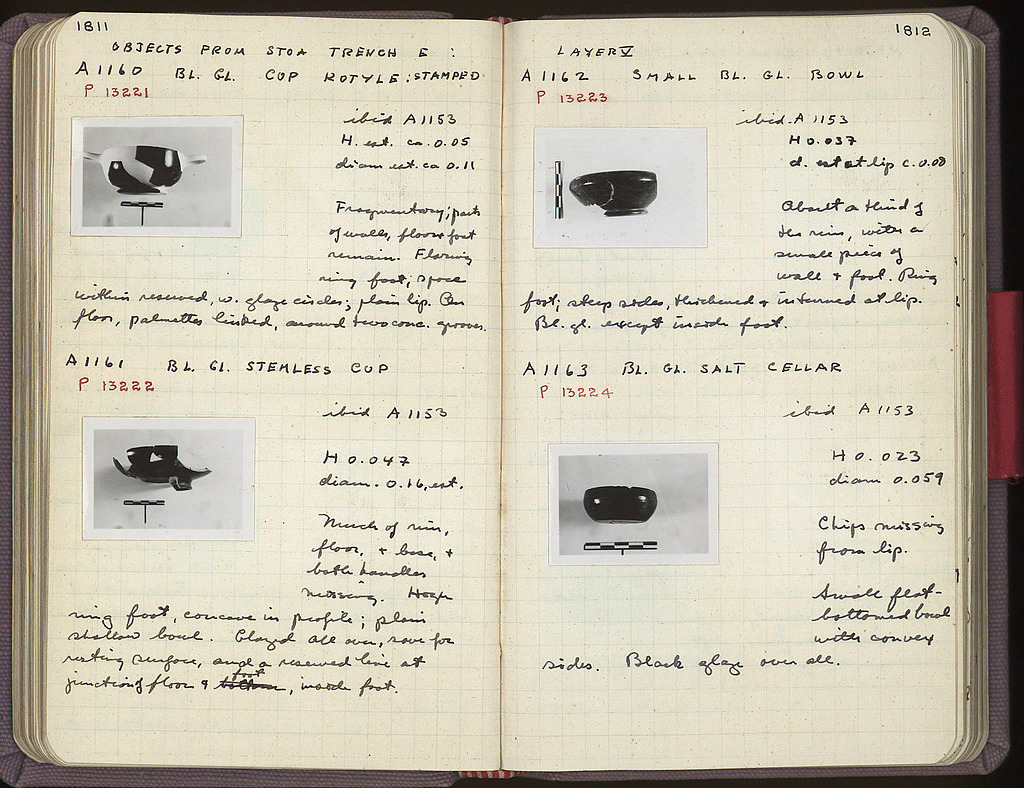 1811
OBJECTS FROM STOA TRENCH E :
A1160 BL. GL. CUP KOTYLE; STAMPED
P 13221
ibid A1153
H. est. ca. 0.05
diam est. ca 0.11
Fragmentary; parts
of walls, floor & foot
remain. Flaring
ring foot; space
within reserved, w. glaze circles; plain lip. On
floor, palmettes linked, around two conc. grooves.
A1161 BL. GL. STEMLESS CUP
P 13222
ibid A1153
H 0.047
diam. 0.16, est.
Much of rim,
floor, & base, &
both handles
missing. High
ring foot, concave in profile; plain
shallow bowl. Glazed all over, save for
resting surface, and a reserved line at
foot
junction of floor & bottom, inside foot.
1812
LAYER V
A1162 SMALL BL. GL. BOWL
P 13223
ibid. A1153
H 0.037
d. est at lip c. 0.08
About a third of
the rim, with a
small piece of
wall & foot. Ring
foot; steep sides, thickened & inturned at lip.
Bl. gl. except inside foot.
A1163 BL. GL. SALT CELLAR
P 13224
ibid A1153
H 0.023
diam 0.059
Chips missing
from lip.
Small flat-
bottomed bowl
with convex
sides. Black glaze over all.